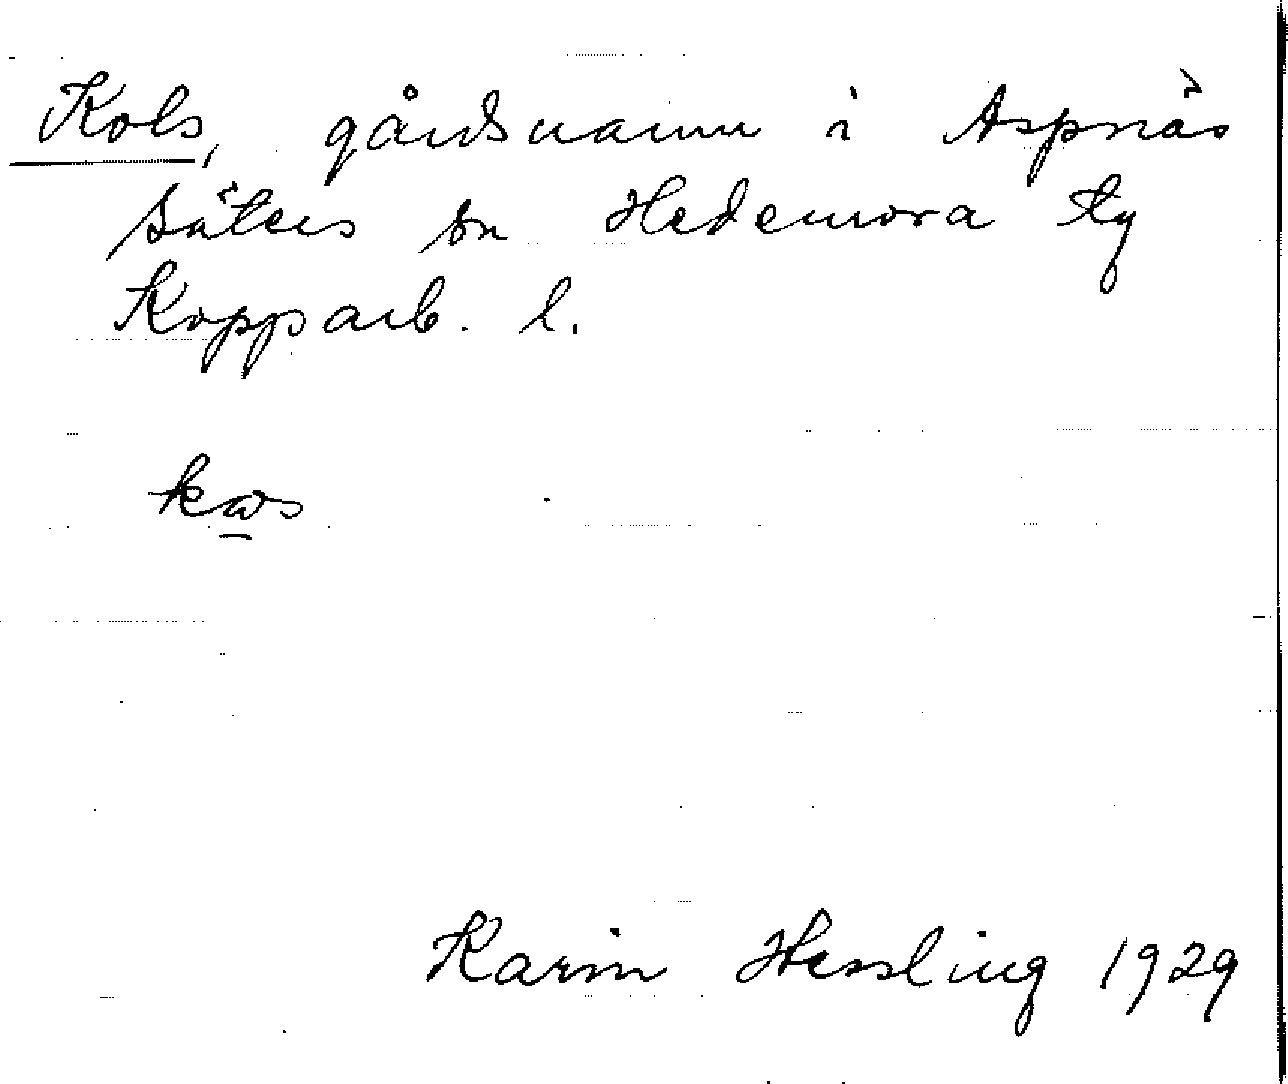 Kols, gårdsnamn i Aspnäs
Säters sn Hedemora tg
Kopparb. l.
Karin Hessling 1929